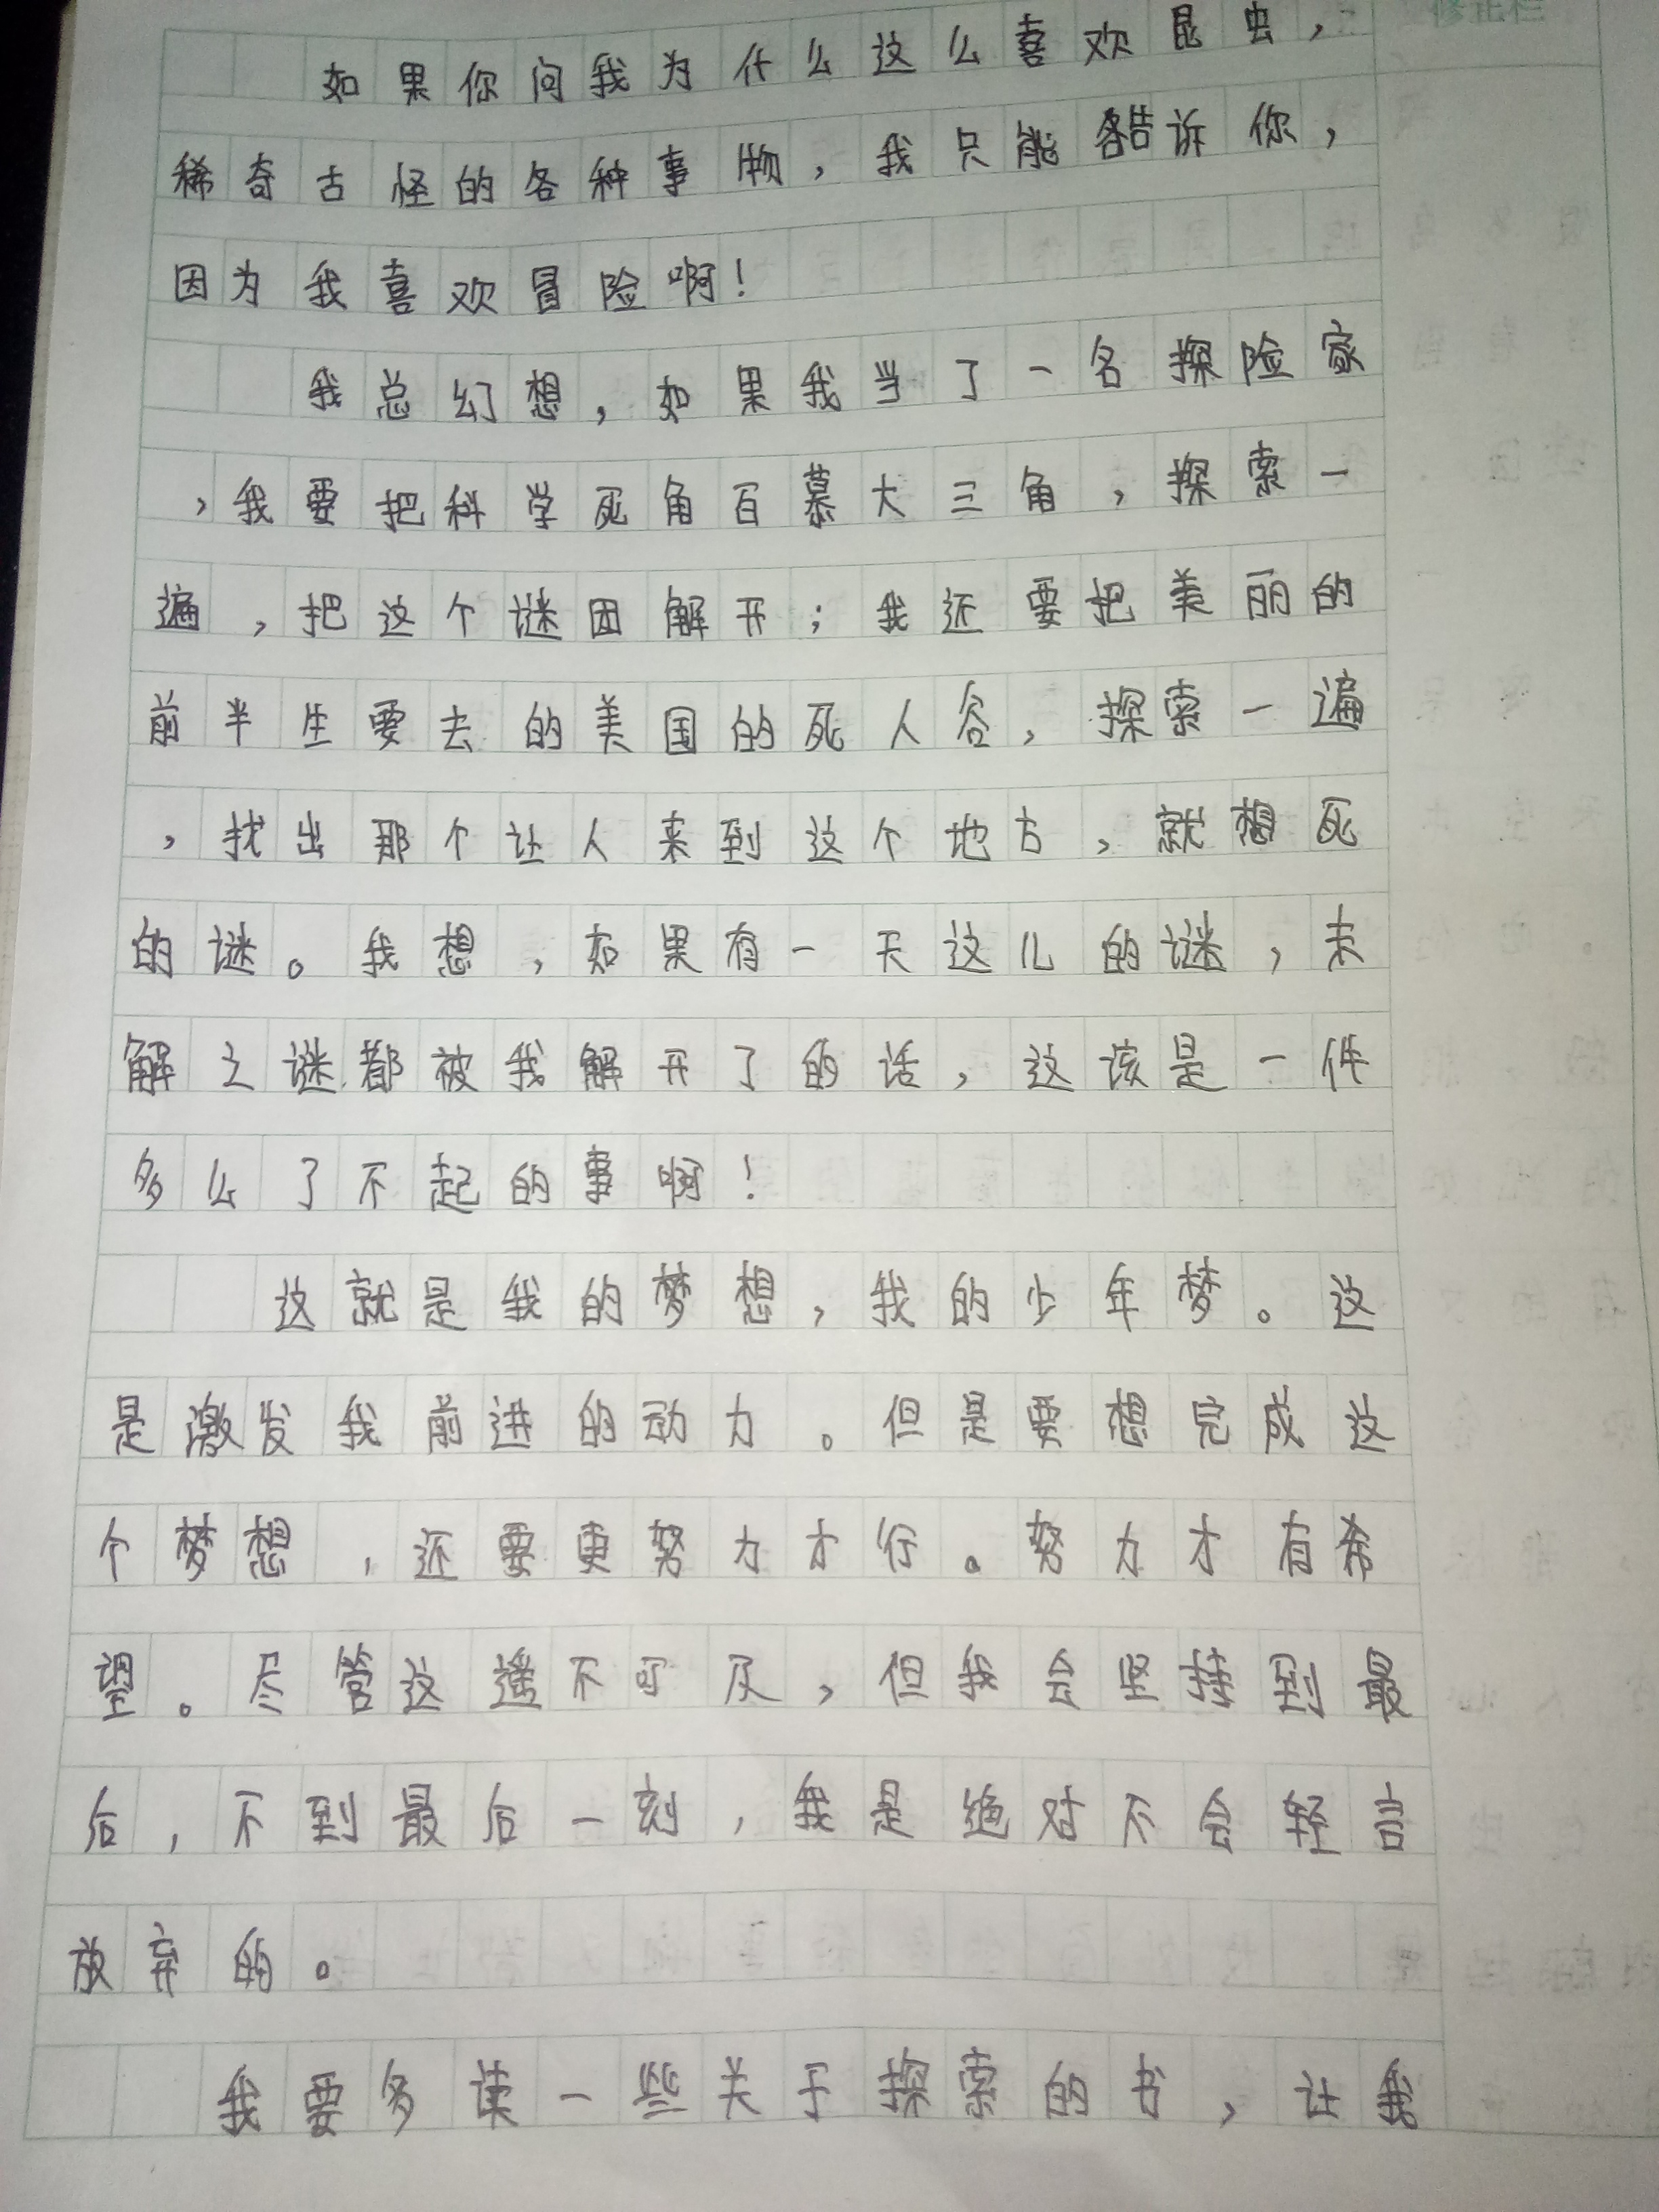 修正栏
如果你问我为什么这么喜欢昆虫，
稀奇古怪的各种事物，我只能告诉你，
因为我喜欢冒险啊！
我总幻想，如果我当了一名探险家
，我要把科学死角百慕大三角，探索一
遍，把这个谜团解开；我还要把美丽的
前半生要去的美国的死人谷，探索一遍
，找出那个让人来到这个地方，就想死
的谜。我想，如果有一天这儿的谜，未
解之谜都被我解开了的话，这该是一件
多么了不起的事啊！
这就是我的梦想，我的少年梦。这
是激发我前进的动力。但是要想完成这
个梦想，还要更努力才行。努力才有希
望。尽管这遥不可及，但我会坚持到最
后，不到最后一刻，我是绝对不会轻言
放弃的。
我要多读一些关于探索的书，让我